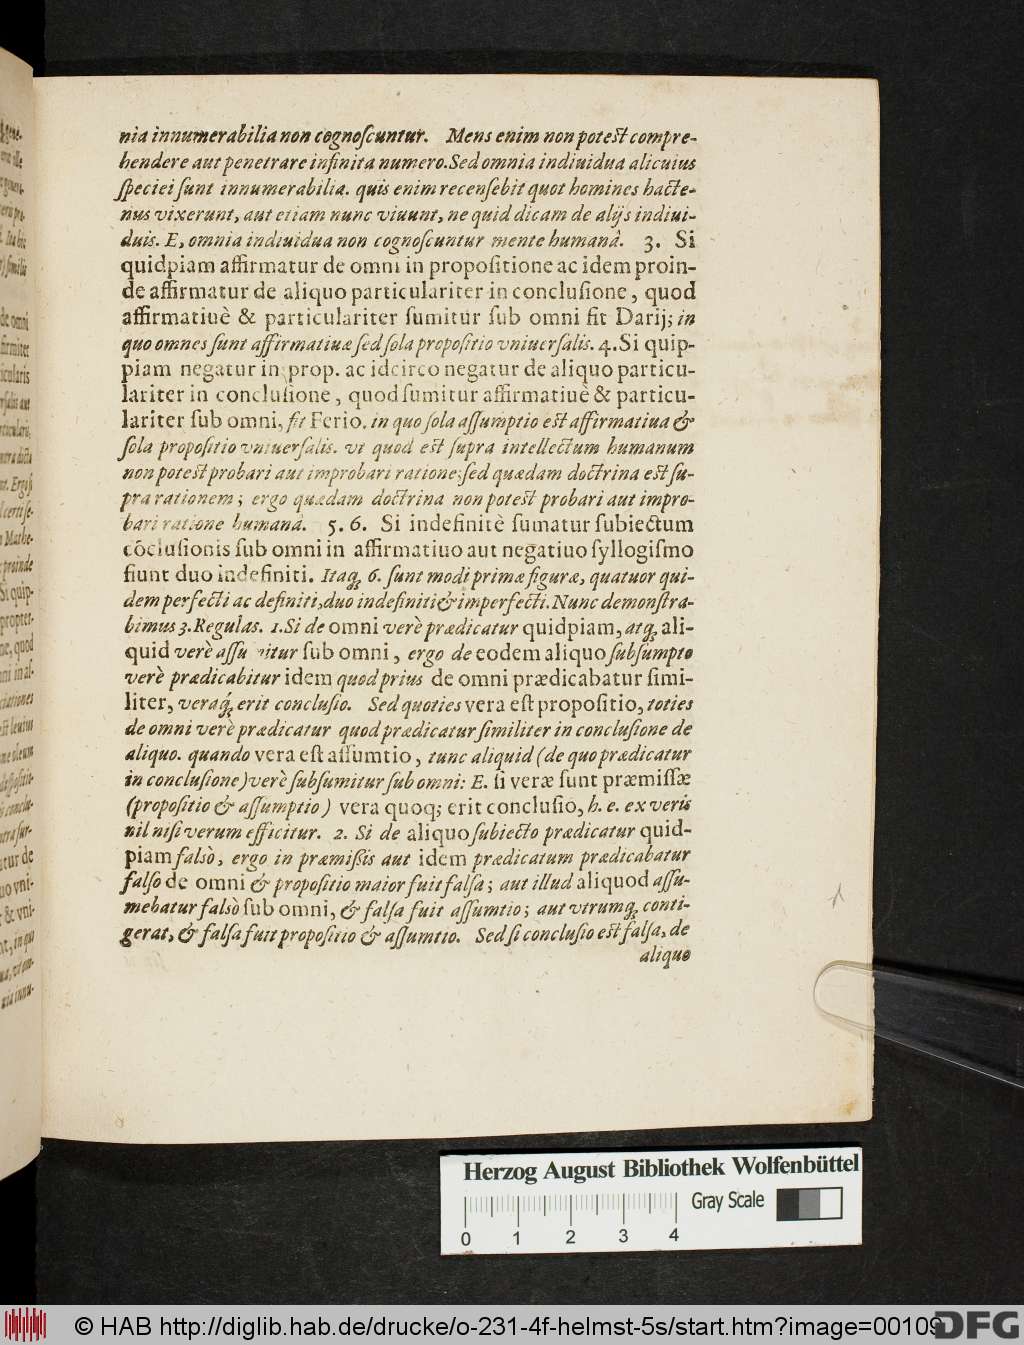 nia innumerabilia non cognoſcuntur. Mens enim non poteſt compre-
hendere aut penetrare infinita numero. Sed omnia indiuidua alicuius
ſpeciei ſunt innumerabilia. quis enim recenſebit quot homines hacte-
nus vixerunt, aut etiam nunc viuunt, ne quid dicam de alijs indiui-
duis. E, omnia indiuidua non cognoſcuntur mente humanâ. 3. Si
quidpiam affirmatur de omni in propoſitione ac idem proin-
de affirmatur de aliquo particulariter in concluſione, quod
affirmatiuè & particulariter ſumitur ſub omni fit Darij; in
quo omnes ſunt affirmatiuæ ſed ſola propoſitio vniuerſalis. 4. Si quip-
piam negatur in prop. ac idcirco negatur de aliquo particu-
lariter in concluſione, quod ſumitur affirmatiuè & particu-
lariter ſub omni, fit Ferio. in quo ſola aſſumptio eſt affirmatiua &
ſola propoſitio vniuerſalis. vt quod eſt ſupra intellectum humanum
non poteſt probari aut improbari ratione; ſed quædam doctrina eſt ſu-
pra rationem; ergo quædam doctrina non poteſt probari aut impro-
bari ratione humanâ. 5. 6. Si indefinitè ſumatur ſubiectum
cõcluſionis ſub omni in affirmatiuo aut negatiuo ſyllogiſmo
fiunt duo indefiniti. Itaq; 6. ſunt modi primæ figuræ, quatuor qui-
dem perfecti ac definiti, duo indefiniti & imperfecti. Nunc demonſtra-
bimus 3. Regulas. 1. Si de omni verè prædicatur quidpiam, atq; ali-
quid verè aſſu nitur ſub omni, ergo de eodem aliquo ſubſumpto
verè prædicabitur idem quod prius de omni prædicabatur ſimi-
liter, veraq́; erit concluſio. Sed quoties vera eſt propoſitio, toties
de omni verè prædicatur quod prædicatur ſimiliter in concluſione de
aliquo. quando vera eſt aſſumtio, tunc aliquid (de quo prædicatur
in concluſione) verè ſubſumitur ſub omni: E. ſi veræ ſunt præmiſſæ
(propoſitio & aſſumptio) vera quoq; erit concluſio, h. e. ex veris
nil niſi verum efficitur. 2. Si de aliquo ſubiecto prædicatur quid-
piam falsò, ergo in præmißis aut idem prædicatum prædicabatur
falſo de omni & propoſitio maior fuit falſa; aut illud aliquod aſſu-
mebatur falsò ſub omni, & falſa fuit aſſumtio; aut vtrumq; conti-
gerat, & falſa fuit propoſitio & aſſumtio. Sed ſi concluſio eſt falſa, de
aliquo
Herzog August Bibliothek Wolfenbüttel
Gray Scale
0 1 2 3 4
© HAB http://diglib.hab.de/drucke/o-231-4f-helmst-5s/start.htm?image=00109
DFG